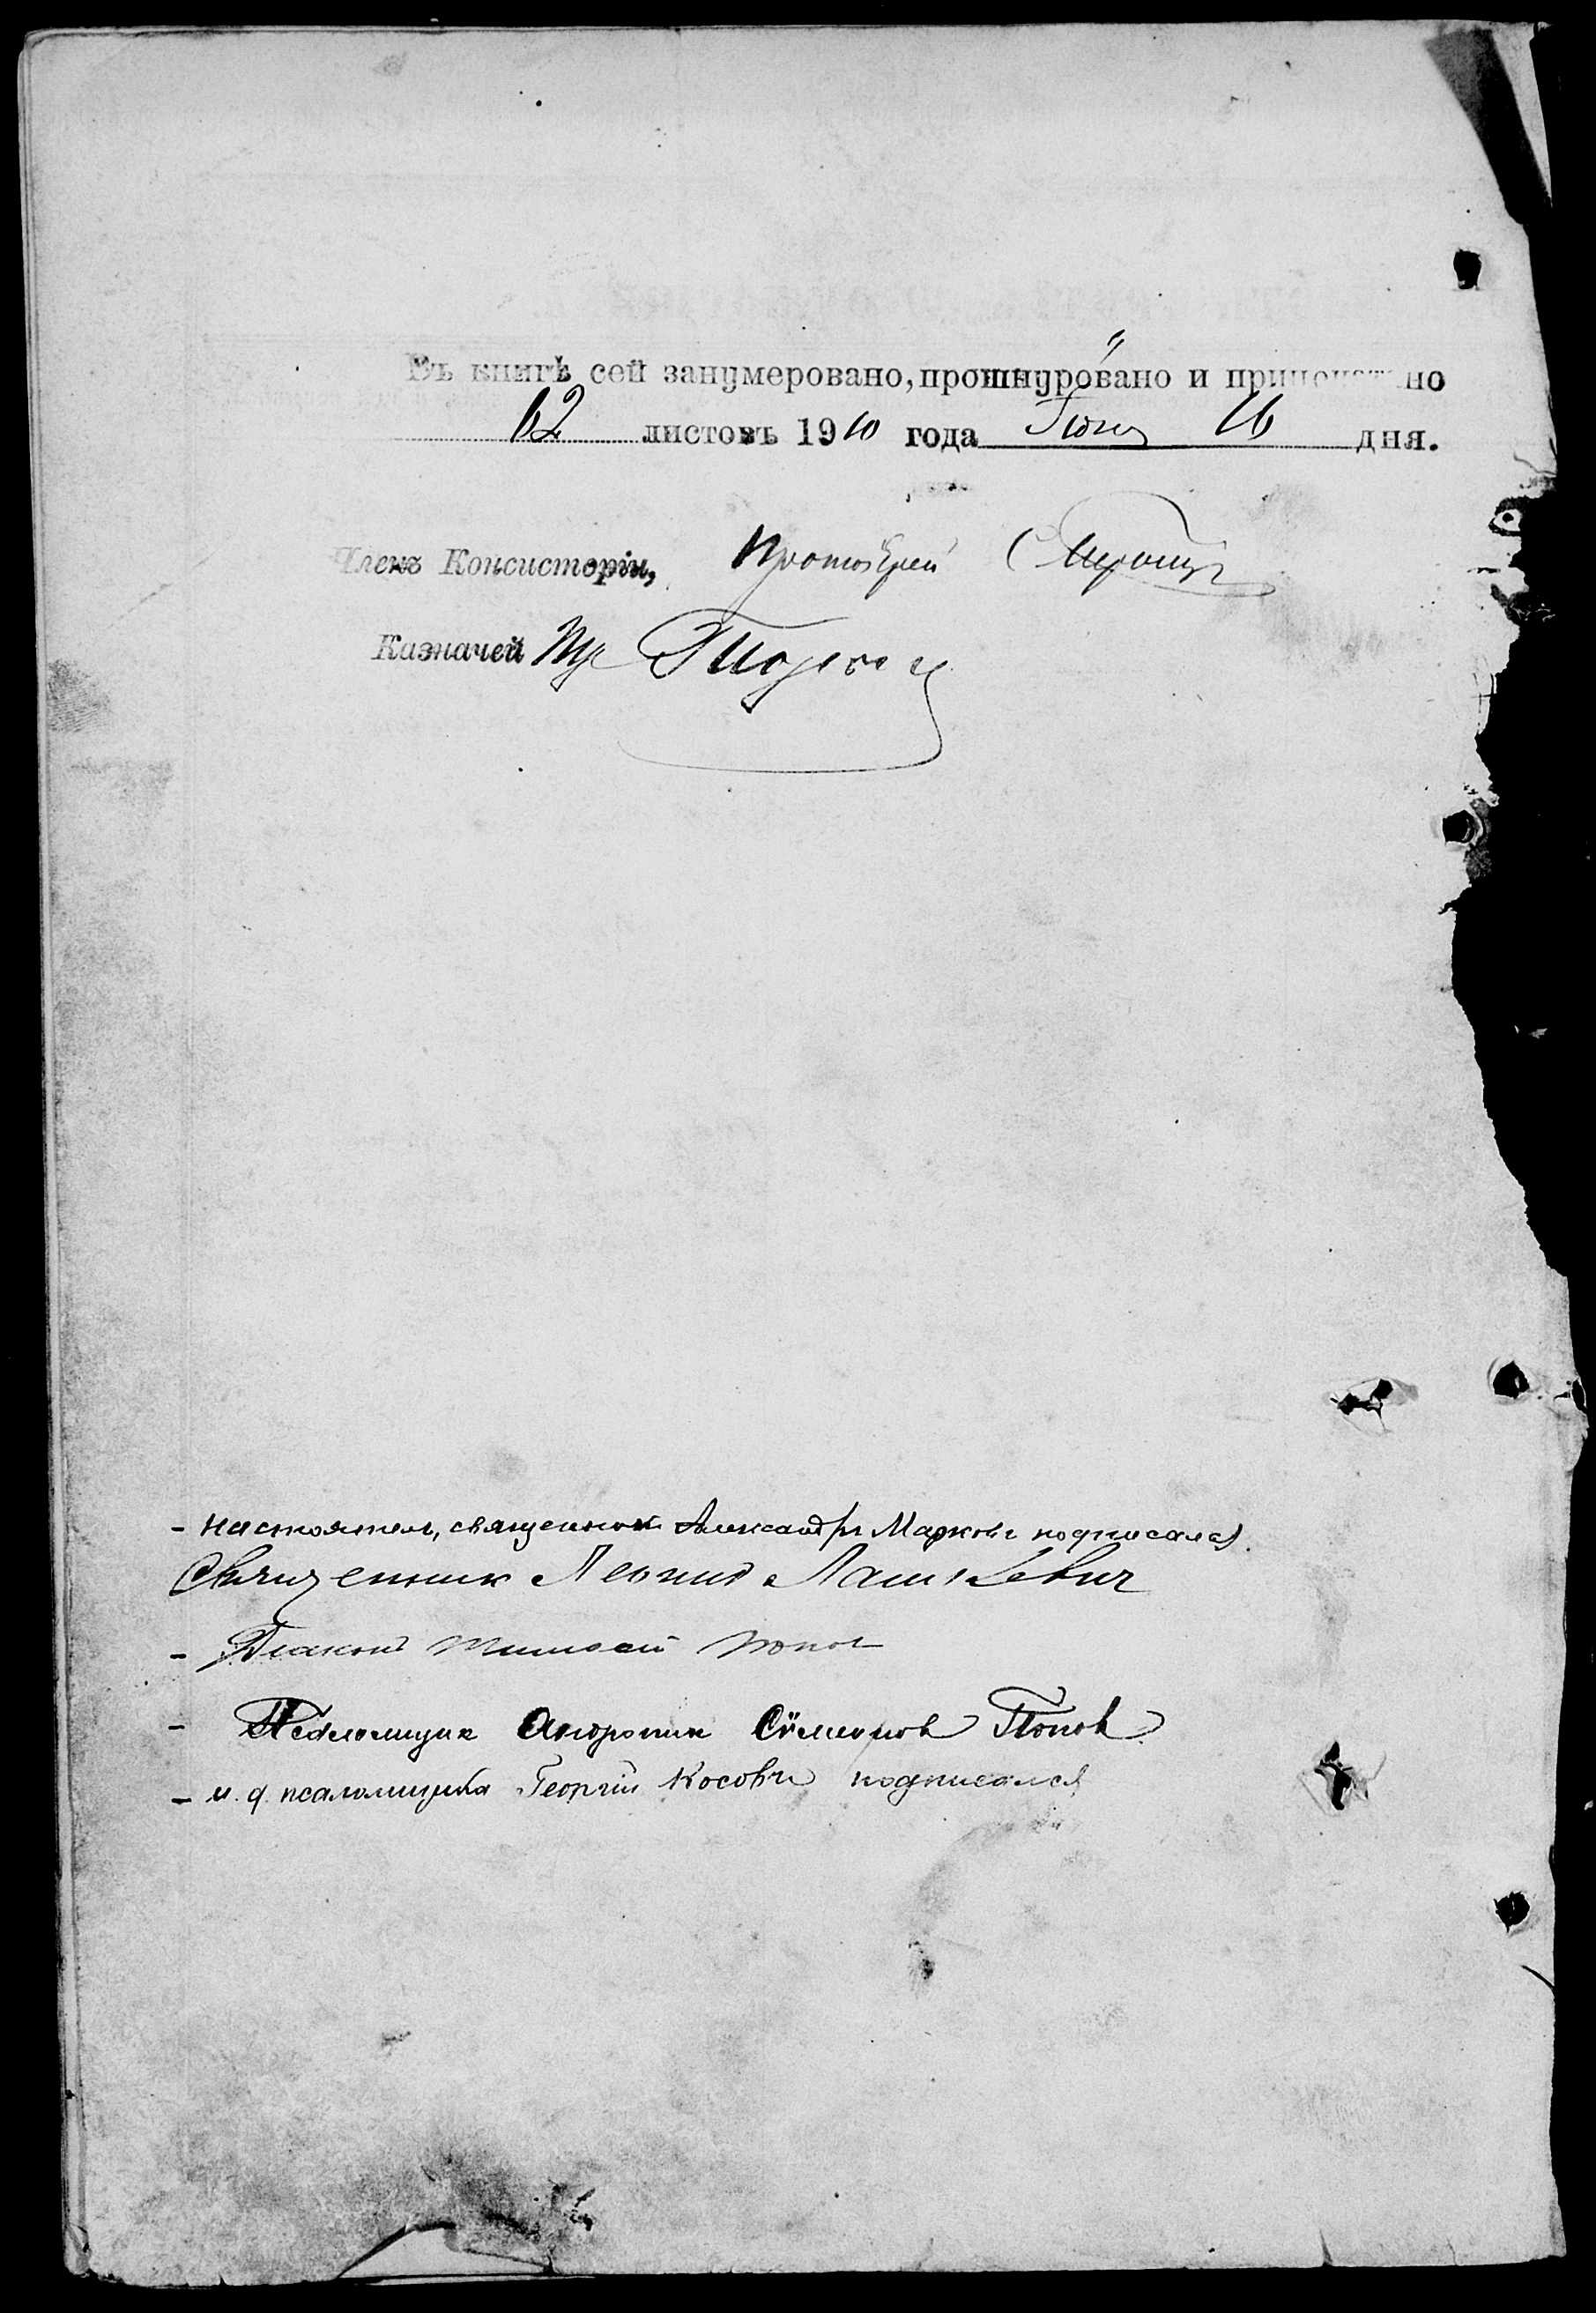 Въ книгѣ сей занумеровано, прошнуровано и припечатано
62 листовъ 1910 года 16 дня.
Членъ Консисторіи, Протоіерей
Казначей
- Настоятель, священникъ Александръ Марковъ подписался.
Священник Леонид Лашкевич
- Діаконъ Тимофей Попов
- Псаломщик Андроник Сѵмеонов Попов
- и. д. псаломщика Георгій Косовъ подписался